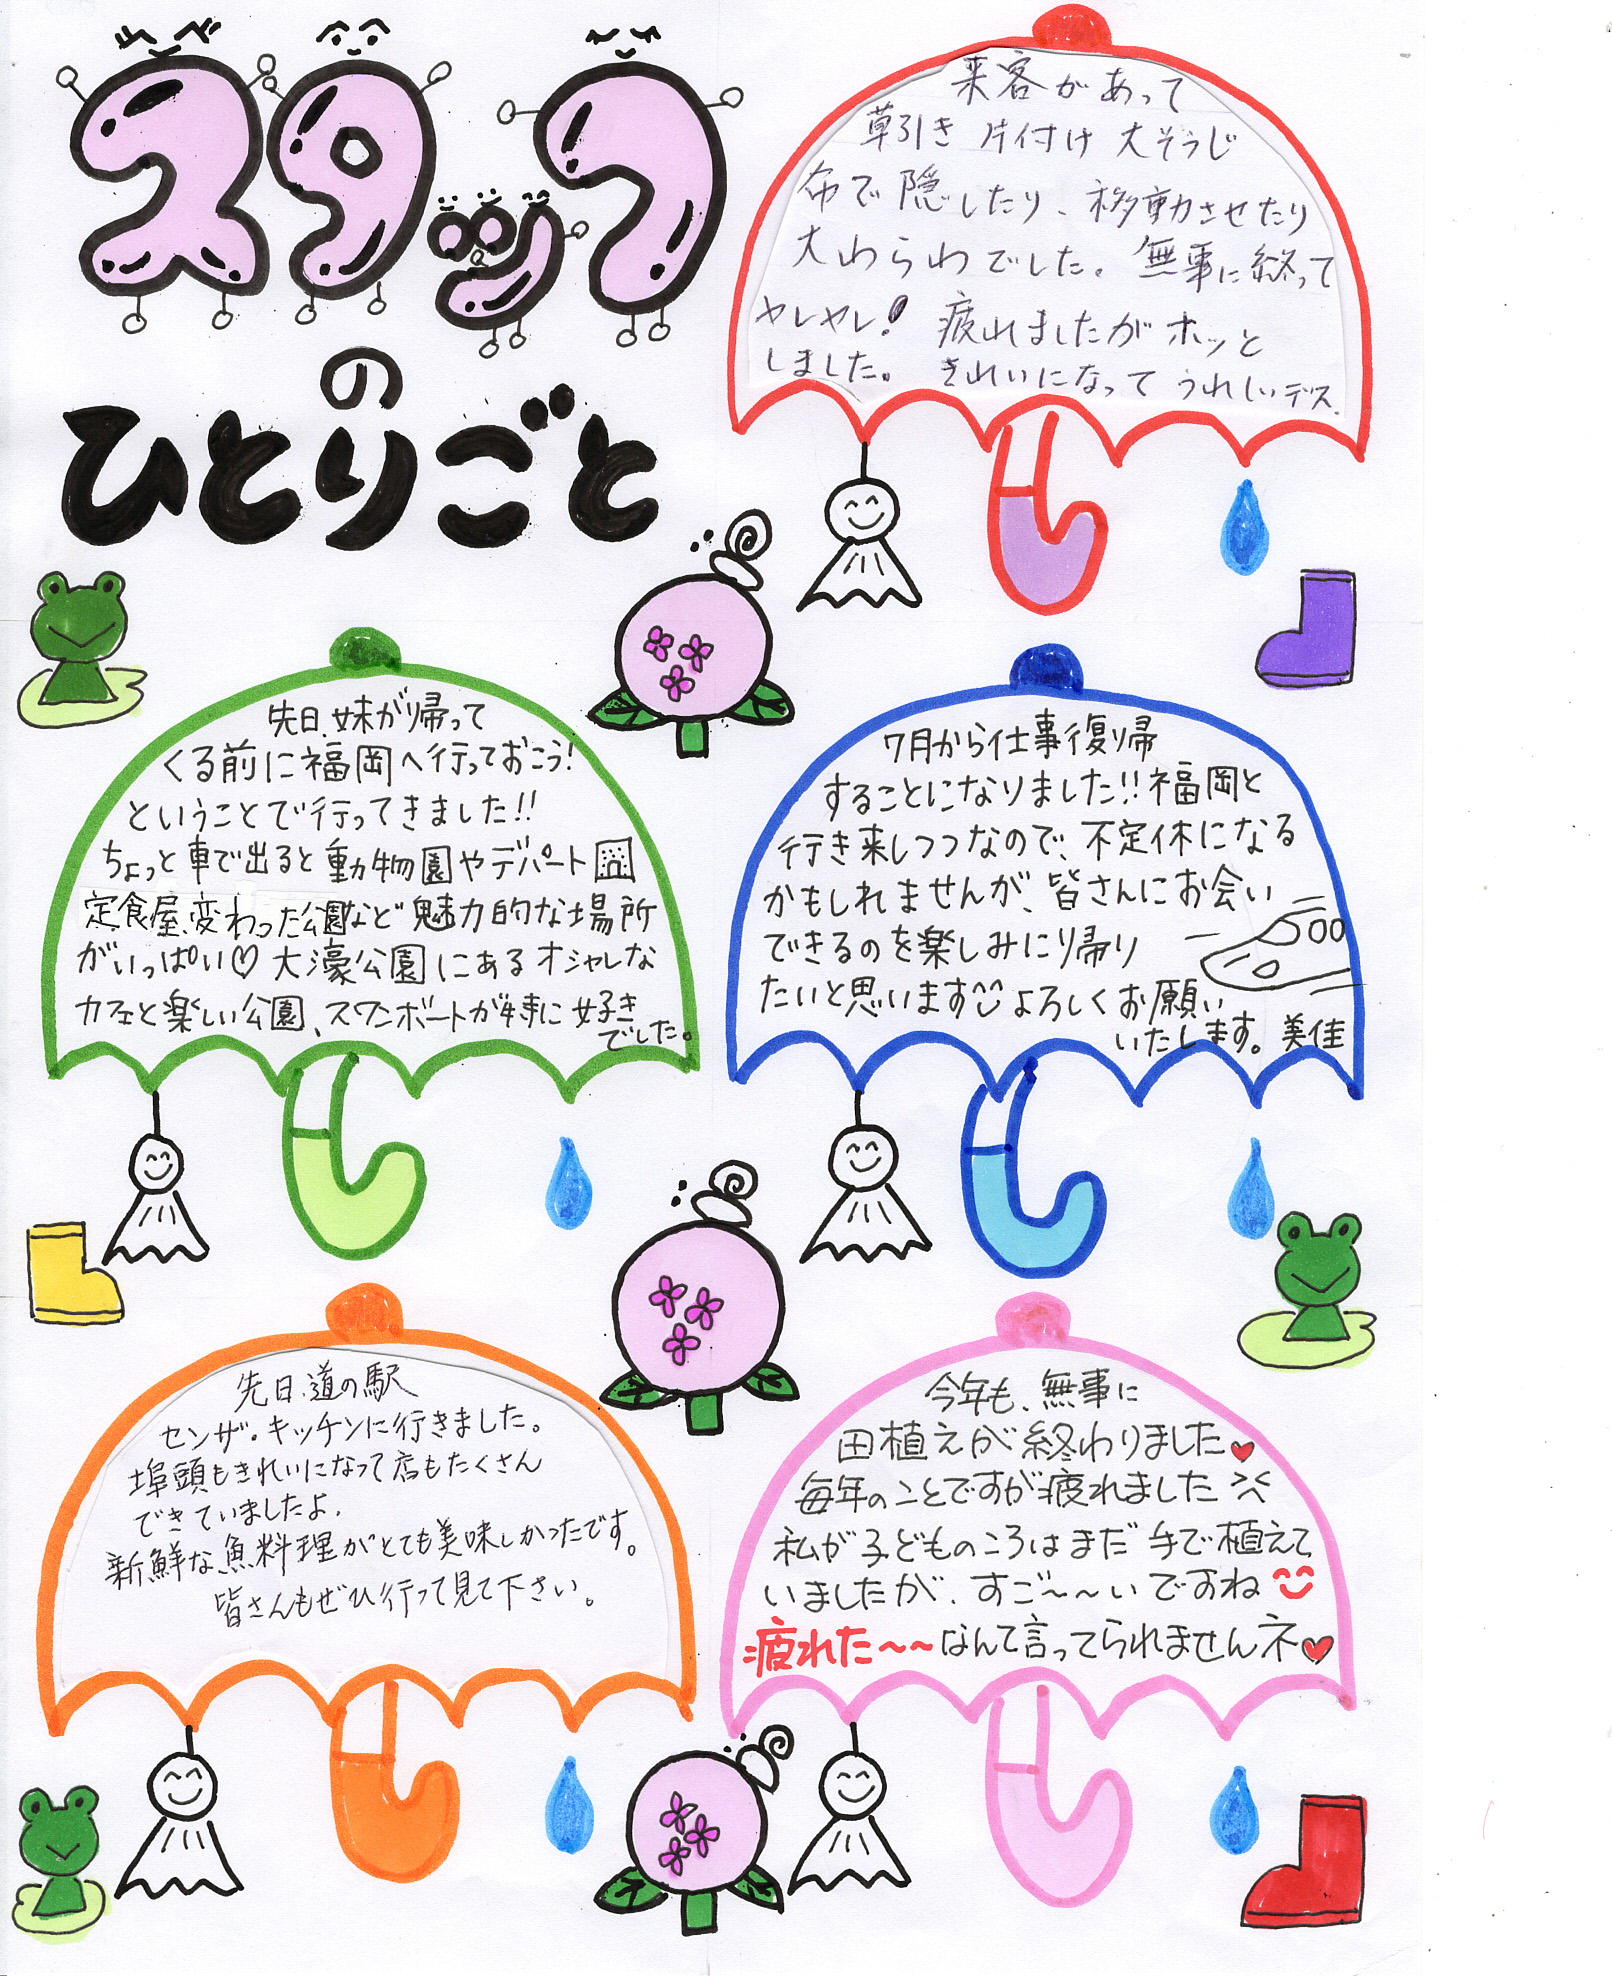 スタッフ
の
ひとりごと
来客があって
草引き 片付け 大そうじ
布で隠したり、移動させたり
大わらわでした。無事に終って
ヤレヤレ! 疲れましたがホッと
しました。 きれいになって うれしいデス.
先日、妹が帰って
くる前に福岡へ行っておこう!
ということで行ってきました!!
ちょっと車で出ると動物園やデパート
定食屋、変わった公園など魅力的な場所
がいっぱい♡ 大濠公園にあるオシャレな
カフェと楽しい公園、スワンボートが特に好き
でした。
7月から仕事復帰
することになりました!!福岡と
行き来しつつなので、不定休になる
かもしれませんが、皆さんにお会い
できるのを楽しみにり帰り
たいと思います よろしくお願い
いたします。美佳
先日、道の駅
センザ・キッチンに行きました。
埠頭もきれいになって店もたくさん
できていましたよ.
新鮮な魚料理がとても美味しかったです。
皆さんもぜひ行って見て下さい。
今年も、無事に
田植えが終わりました♥
毎年のことですが疲れました
私が子どものころはまだ手で植えて
いましたが、すご～～いですね
疲れた～～なんて言ってられませんネ♥